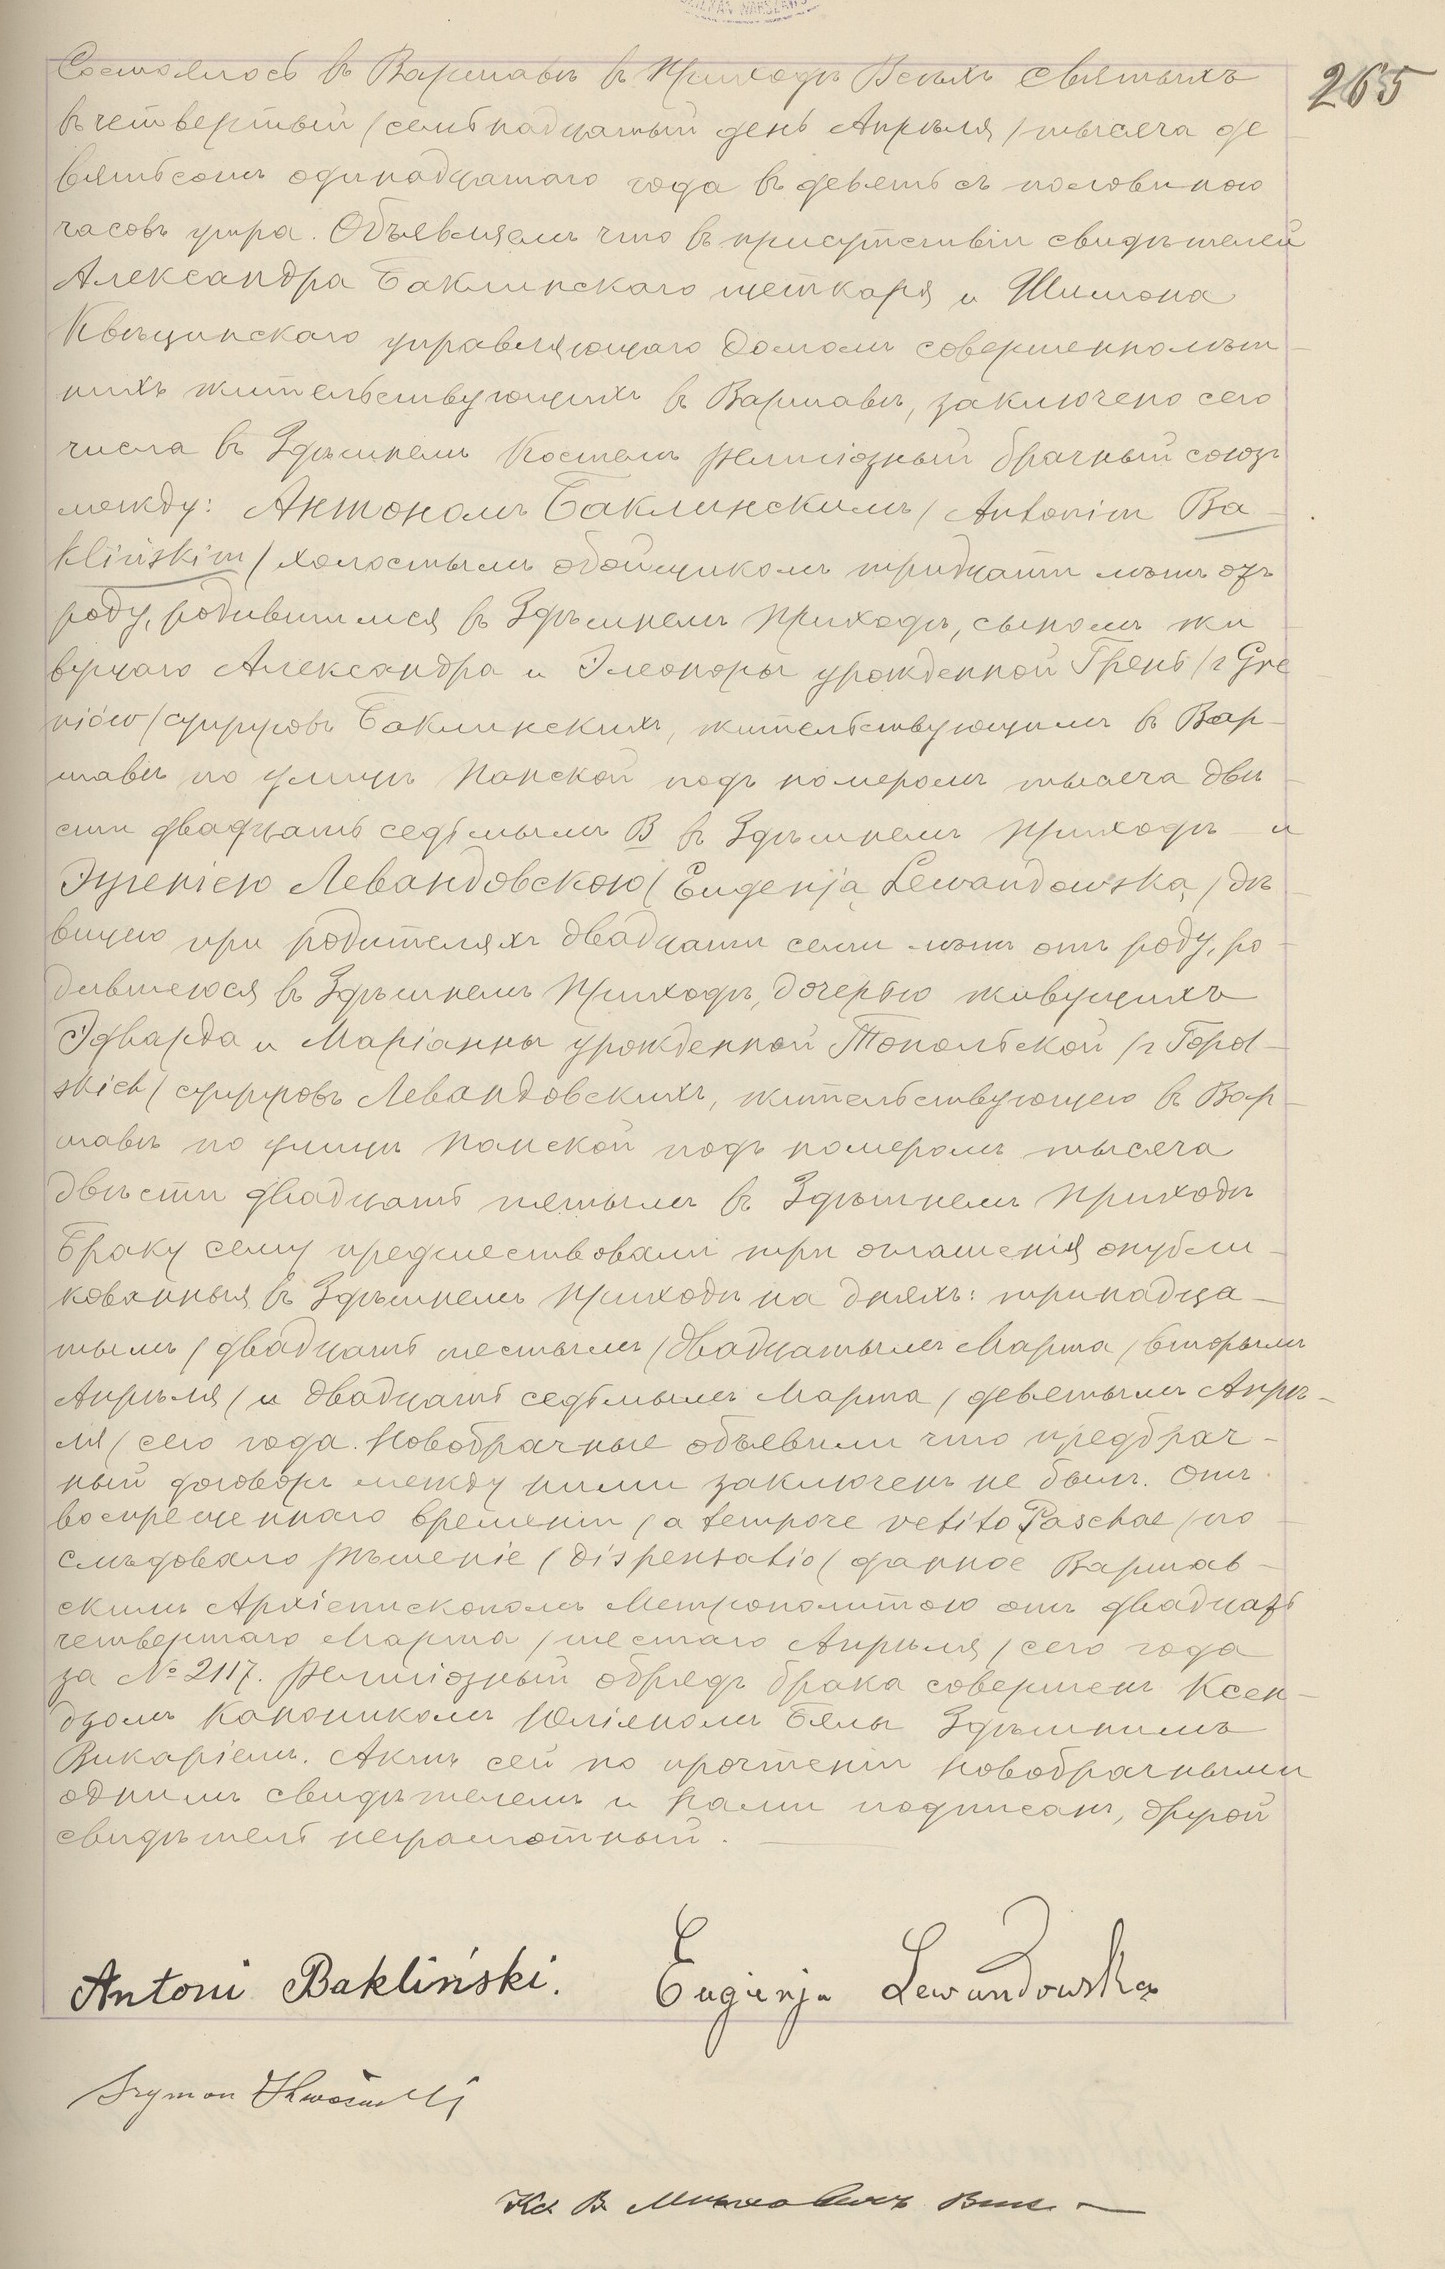 265
Состоялось въ Варшавѣ въ Приходѣ Всѣхъ Святыхъ
въ четвертый /семьнадцатый день Апрѣля/ тысяча де
вятьсотъ одинадцатаго года въ девять съ половиною
часовъ утра. Объявляемъ что въ присутствіи свидѣтелей
Александра Баклинскаго щеткаря и Шимона
Квѣцинскаго управляющаго домомъ совершеннолѣт-
нихъ жительствующихъ въ Варшавѣ, заключено сего
числа въ Здѣшнемъ Костелѣ религіозный брачный союзъ
между: Антономъ Баклинскимъ /Antonim Ba-
klińskim/ холостымъ обойщикомъ тридцати лѣтъ отъ
роду, родившимся въ Здѣшнемъ Приходѣ, сыномъ жи-
вущаго Александра и Элеоноры урожденной Грень /z Gre
niów/ супруговъ Баклинскихъ, жительствующимъ въ Вар-
шавѣ по улицѣ Панской подъ номеромъ тысяча двѣ-
сти двадцать седьмымъ В въ Здѣшнемъ Приходѣ и
Эугеніею Левандовскою /Eugenją Lewandowską/ дѣ-
вицею при родителяхъ двадцати семи лѣтъ отъ роду, ро-
дившеюся въ Здѣшнемъ Приходѣ, дочерью живущихъ
Эдварда и Маріанны урожденной Топольской /z Topol-
skich/ супруговъ Левандовскихъ, жительствующею въ Вар-
шавѣ по улицѣ Панской подъ номеромъ тысяча
двѣсти двадцать пятымъ въ Здѣшнемъ Приходѣ
Браку сему предшествовали три оглашенія опубли-
кованныя въ Здѣшнемъ Приходѣ на дняхъ: тринадца-
тымъ /двадцать шестымъ/ двадцатымъ Марта /вторымъ
Апрѣля/ и двадцать седьмымъ Марта /девятымъ Апрѣ-
ля/ сего года. Новобрачные объявили что предбрач-
ный договоръ между ними заключенъ не былъ. Отъ
воспрещеннаго времени /a tempore vetito Paschae/ по
слѣдовало рѣшеніе /dispensatio/ данное Варшав-
скимъ Архіепископомъ Метрополитою отъ двадцать
четвертаго Марта /шестаго Апрѣля/ сего года
за № 2117. Религіозный обрядъ брака совершенъ Ксен-
дзомъ Каноникомъ Юліяномъ Бялы Здѣшнимъ
Викаріемъ. Актъ сей по прочтеніи новобрачными
однимъ свидѣтелемъ и Нами подписанъ, другой
свидѣтель неграмотный.
Antoni Bakliński. Eugienja Lewandowska
Szymon
Кс. В.